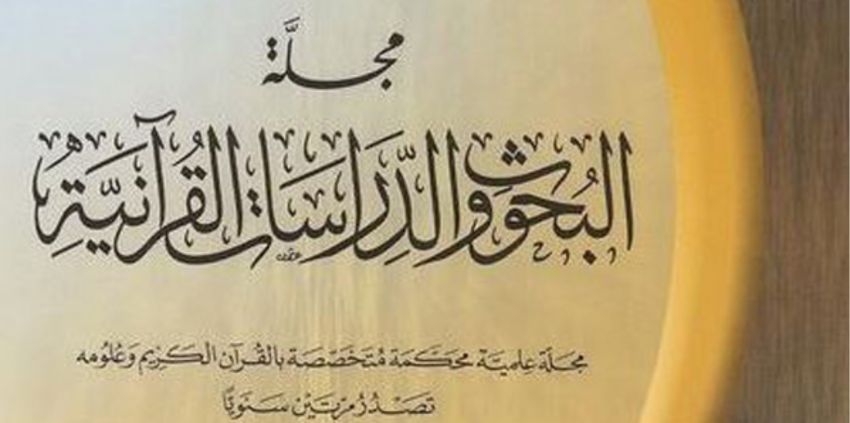 مجلَّة
البُحوثِ والدِّرَاسَاتِ القُرآنيَّةِ
مجَلّة عِلميَّة محَكَمَة مُتَخَصّصَة بالقُرآن الكَرِيْم وَعُلُومه
تَصْدُرُ مرّتَيْن سَنَويًّا